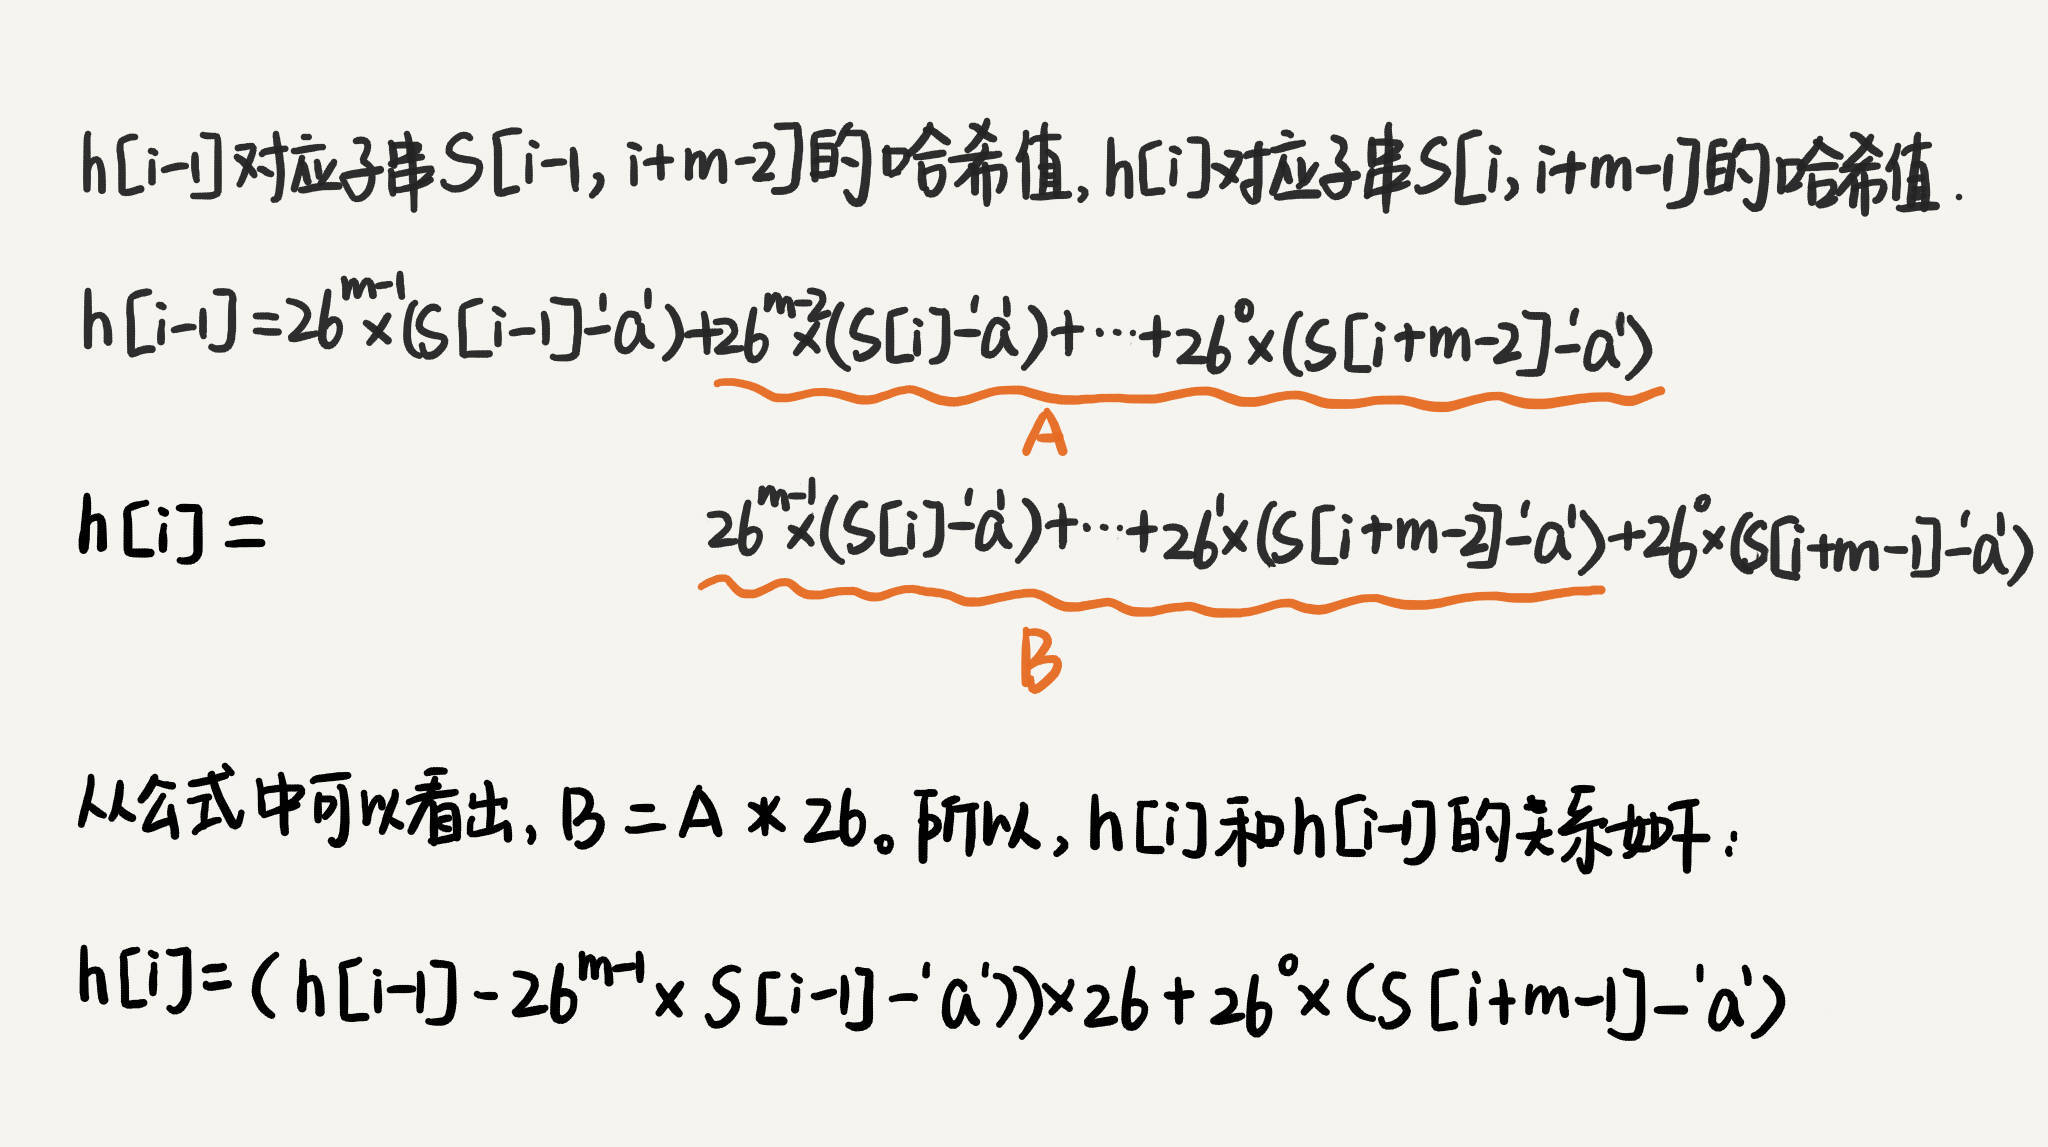 h[i-1]对应子串S[i-1, i+m-2]的哈希值, h[i]对应子串S[i, i+m-1]的哈希值.
h[i-1]=26^{m-1}×(S[i-1]-'a')+26^{m-2}×(S[i]-'a')+···+26^0×(S[i+m-2]-'a')
A
h[i]= 26^{m-1}×(S[i]-'a')+···+26^1×(S[i+m-2]-'a')+26^0×(S[i+m-1]-'a')
B
从公式中可以看出, B=A*26。所以, h[i]和h[i-1]的关系如下:
h[i]=(h[i-1]-26^{m-1}×S[i-1]-'a'))×26+26^0×(S[i+m-1]-'a')